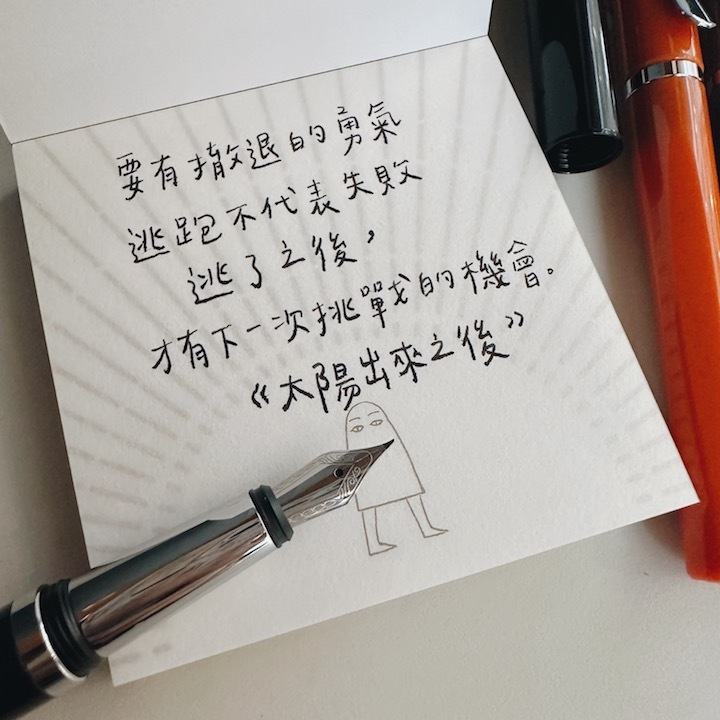 要有撤退的勇氣
逃跑不代表失敗
逃了之後，
才有下一次挑戰的機會。
《太陽出來之後》